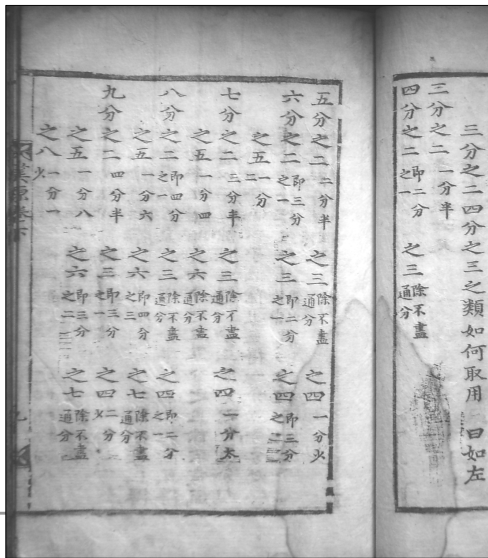 三分之二四分之三之類如何取用 曰如左
三分之二 一分半
四分之二 即二分之一 之三 除不盡通分
五分之二 二分半 之三 除不盡通分 之四 一分火
六分之二 即三分之一 之三 即二分之一 之四 即三分之二
之五 一分二
七分之二 三分半 之三 除不盡通分 之四 一分太
之五 一分四 之六 除不盡通分
八分之二 即四分之一 之三 除不盡通分 之四 即二分之一
之五 一分六 之六 即四分之三 之七 除不盡通分
九分之二 四分半 之三 即三分之一 之四 二分火
之五 一分八 之六 即三分之二 之七 除不盡通分
之八 一分一火
九